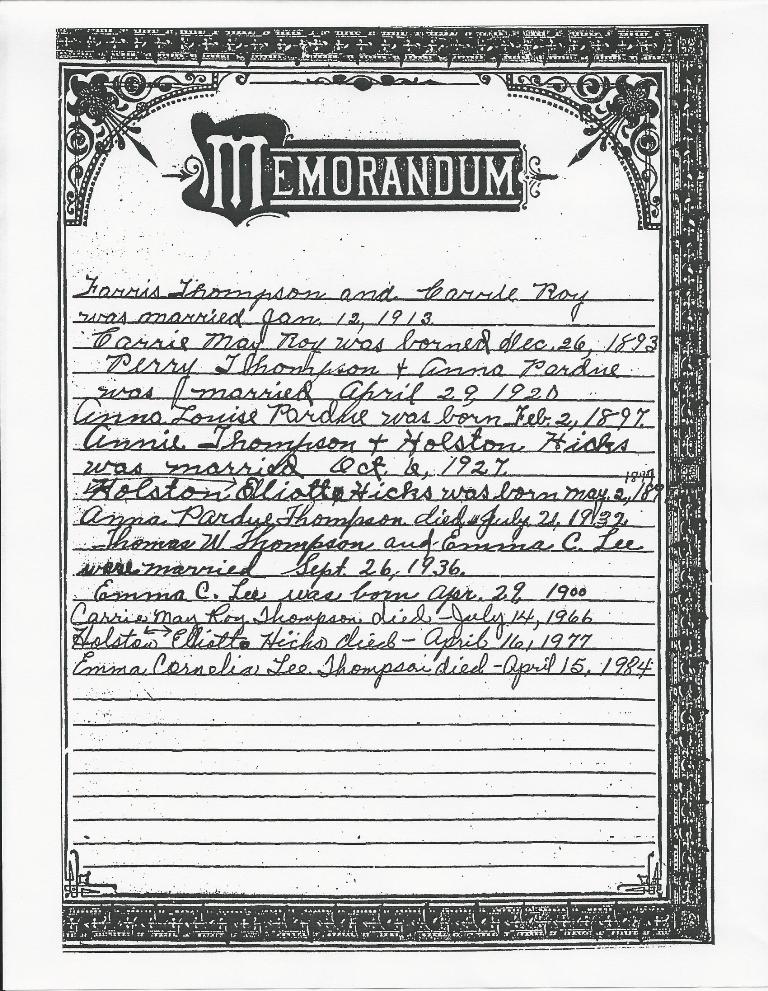 MEMORANDUM
Farris Thompson and Carrie Roy
was married Jan. 12, 1913.
Carrie May Roy was borned dec. 26, 1893
Perry Thompson & Anna Pardue
was married April 29, 1920
Anna Louise Pardue was born Feb. 2, 1897.
Annie Thompson + Holston Hicks
was married Oct. 6, 1927.
Holston Eliotte Hicks was born may. 2,
Anna Pardue Thompson died July 21, 1932
Thomas W Thompson and Emma C. Lee
were married Sept. 26, 1936.
Emma C. Lee was born Apr. 29, 1900
Carrie May Roy Thompson died - July 14, 1966
Holston Elliotte Hicks died - April 16, 1977
Emma Cornelia Lee Thompson died - April 15, 1984